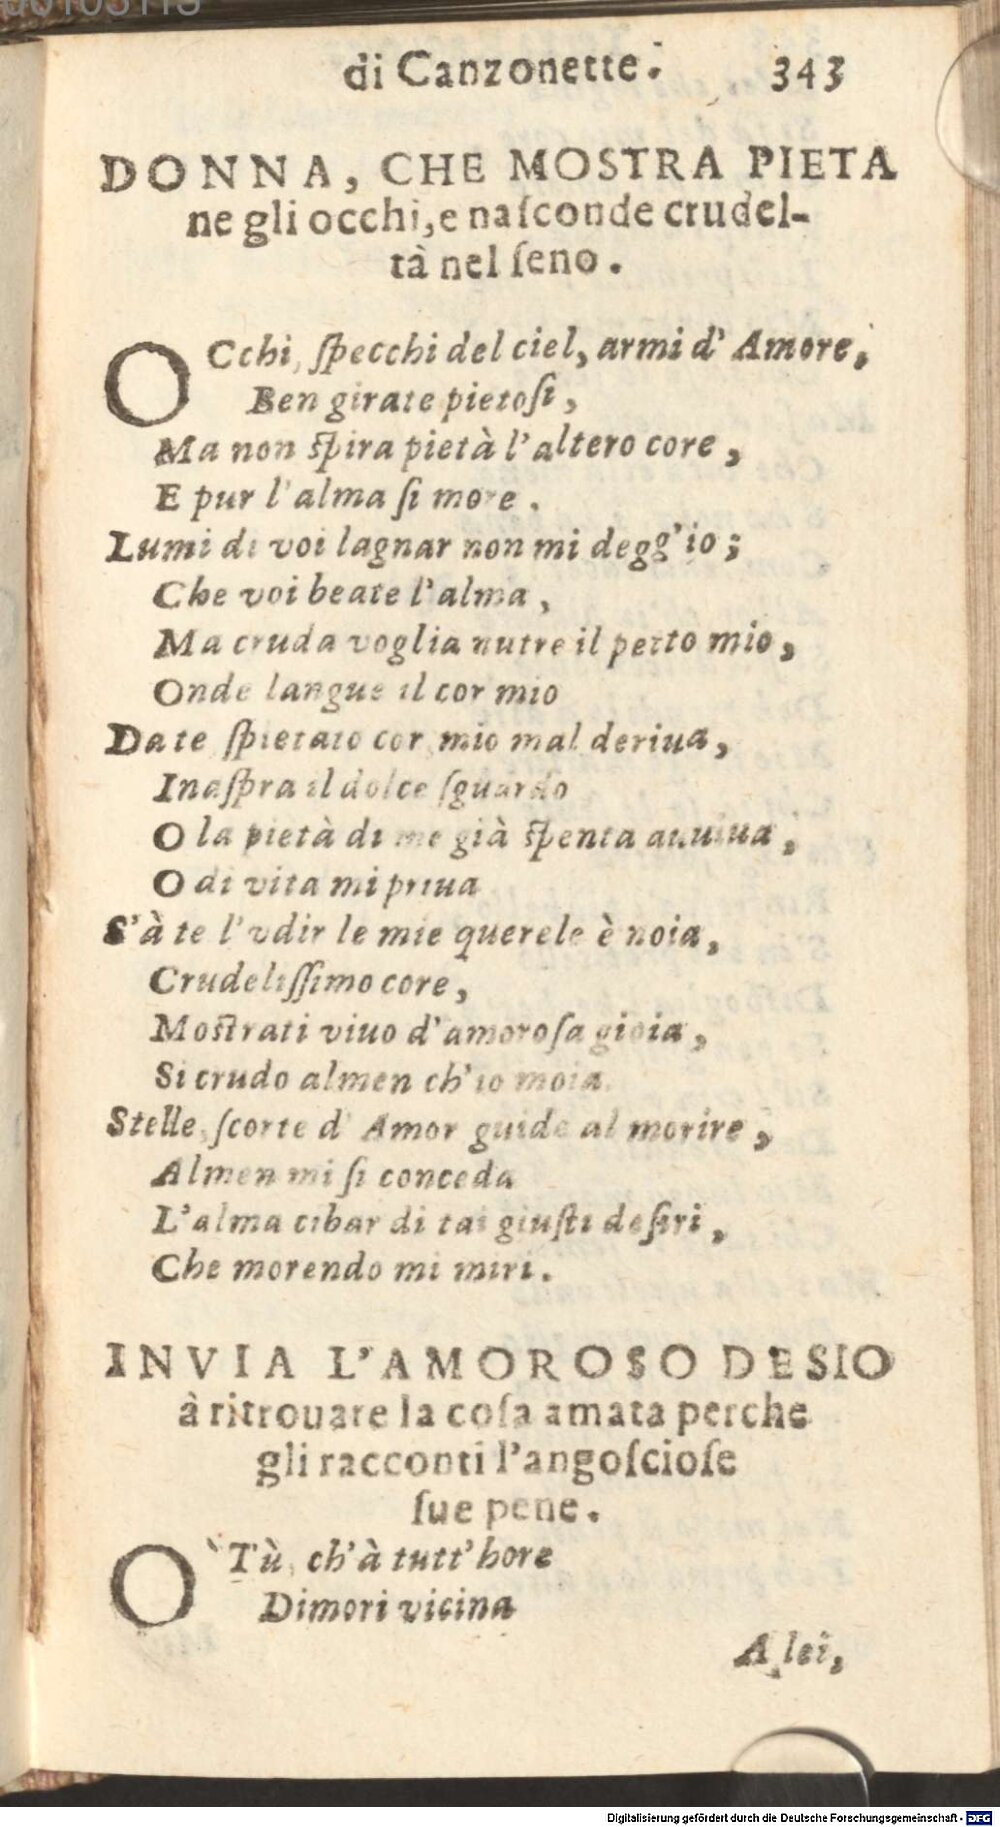 di Canzonette. 343
DONNA, CHE MOSTRA PIETA
ne gli occhi, e naſconde crudel-
tà nel ſeno.
OCchi, ſpecchi del ciel, armi d' Amore,
Ben girate pietoſi,
Ma non ſpira pietà l'altero core,
E pur l'alma ſi more.
Lumi di voi lagnar non mi degg'io;
Che voi beate l'alma,
Ma cruda voglia nutre il petto mio,
Onde langue il cor mio
Da te ſpietato cor mio mal deriua,
Inaſpra il dolce ſguardo
O la pietà di me già ſpenta auuiua,
O di vita mi priua
S'à te l'vdir le mie querele è noia,
Crudeliſſimo core,
Moſtrati viuo d'amoroſa gioia,
Si crudo almen ch'io moia
Stelle, ſcorte d' Amor guide al morire,
Almen mi ſi conceda
L'alma cibar di tai giuſti deſiri,
Che morendo mi miri.
INVIA L'AMOROSO DESIO
à ritrouare la coſa amata perche
gli racconti l'angoſcioſe
ſue pene.
O Tù, ch'à tutt' hore
Dimori vicina
A lei,
Digitalisierung gefördert durch die Deutsche Forschungsgemeinschaft - DFG